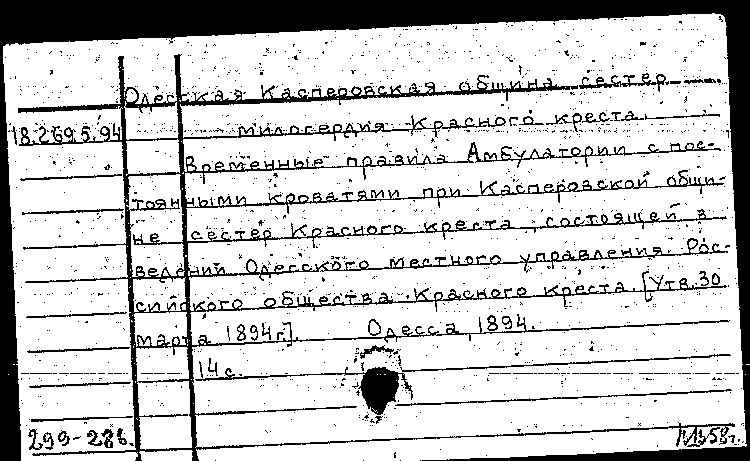 Одесская Касперовская община сестер
18.269.5.94 милосердия Красного креста.
Временные правила Амбулатории с пос-
тоянными кроватями при Касперовской общи-
не сестер Красного креста, состоящей в
ведении Одесского местного управления Рос-
сийского общества Красного креста. [Утв. 30
марта 1894 г.]. Одесса, 1894.
14 с.
299-286.